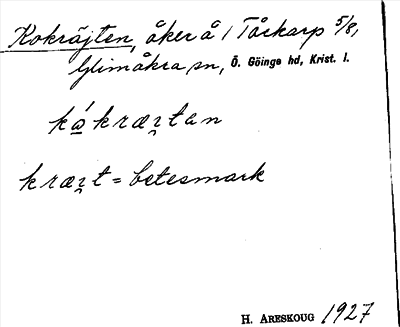 Kokräjten, åker å 1 Tåckarp 5/8,
Glimåkra sn, Ö. Göinge hd, Krist. l.
kákræʒtan
kræʒt = betesmark
H. ARESKOUG 1927